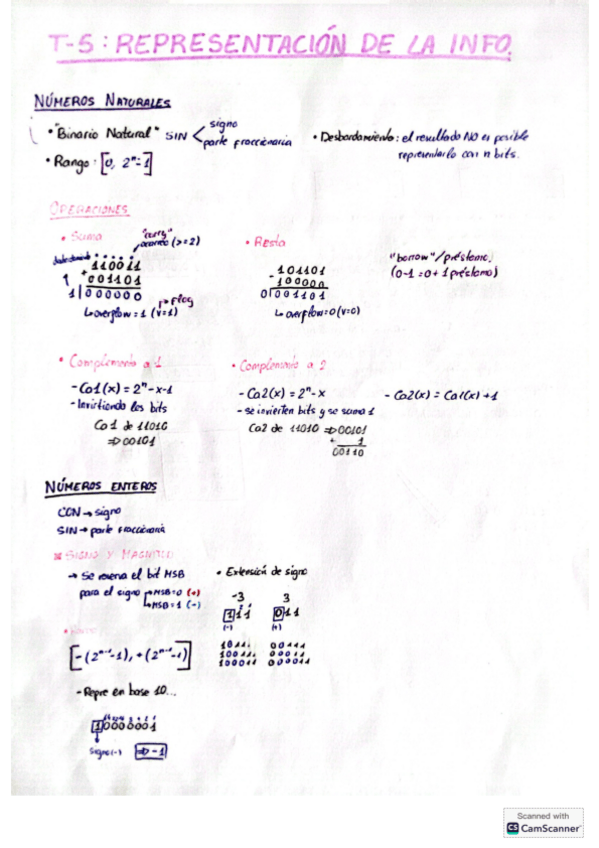 T-5: REPRESENTACIÓN DE LA INFO.
NÚMEROS NATURALES
• "Binario Natural" SIN < signo
parte fraccionaria
• Rango: [0, 2ⁿ-1]
• Desbordamiento: el resultado NO es posible
representarlo con n bits.
OPERACIONES
• Suma
"carry"
acarreo (>=2)
110011
+
001101
1
1|000000
↳ overflow = 1 (V=1)
→ Flag
• Resta
101101
- 100000
0|001101
↳ overflow=0 (V=0)
"borrow"/préstamo.
(0-1=0+1 préstamo)
• Complemento a 1
- Ca1(x) = 2ⁿ-x-1
- Invirtiendo los bits
Ca1 de 11010
⇒ 00101
• Complemento a 2
- Ca2(x) = 2ⁿ-x
- se invierten bits y se suma 1
Ca2 de 11010 ⇒ 00101
+ 1
00110
- Ca2(x) = Ca1(x) +1
NÚMEROS ENTEROS
CON → signo
SIN → parte fraccionaria
SIGNO Y MAGNITUD
→ Se reserva el bit MSB
para el signo → MSB=0 (+)
↳ MSB=1 (-)
• Extensión de signo
-3 3
111 011
(-) (+)
10011 00011
100011 000011
[-(2ⁿ⁻¹-1), +(2ⁿ⁻¹-1)]
- Repre en base 10...
10000001
signo(-) ⇒ -1
Scanned with
CS CamScanner